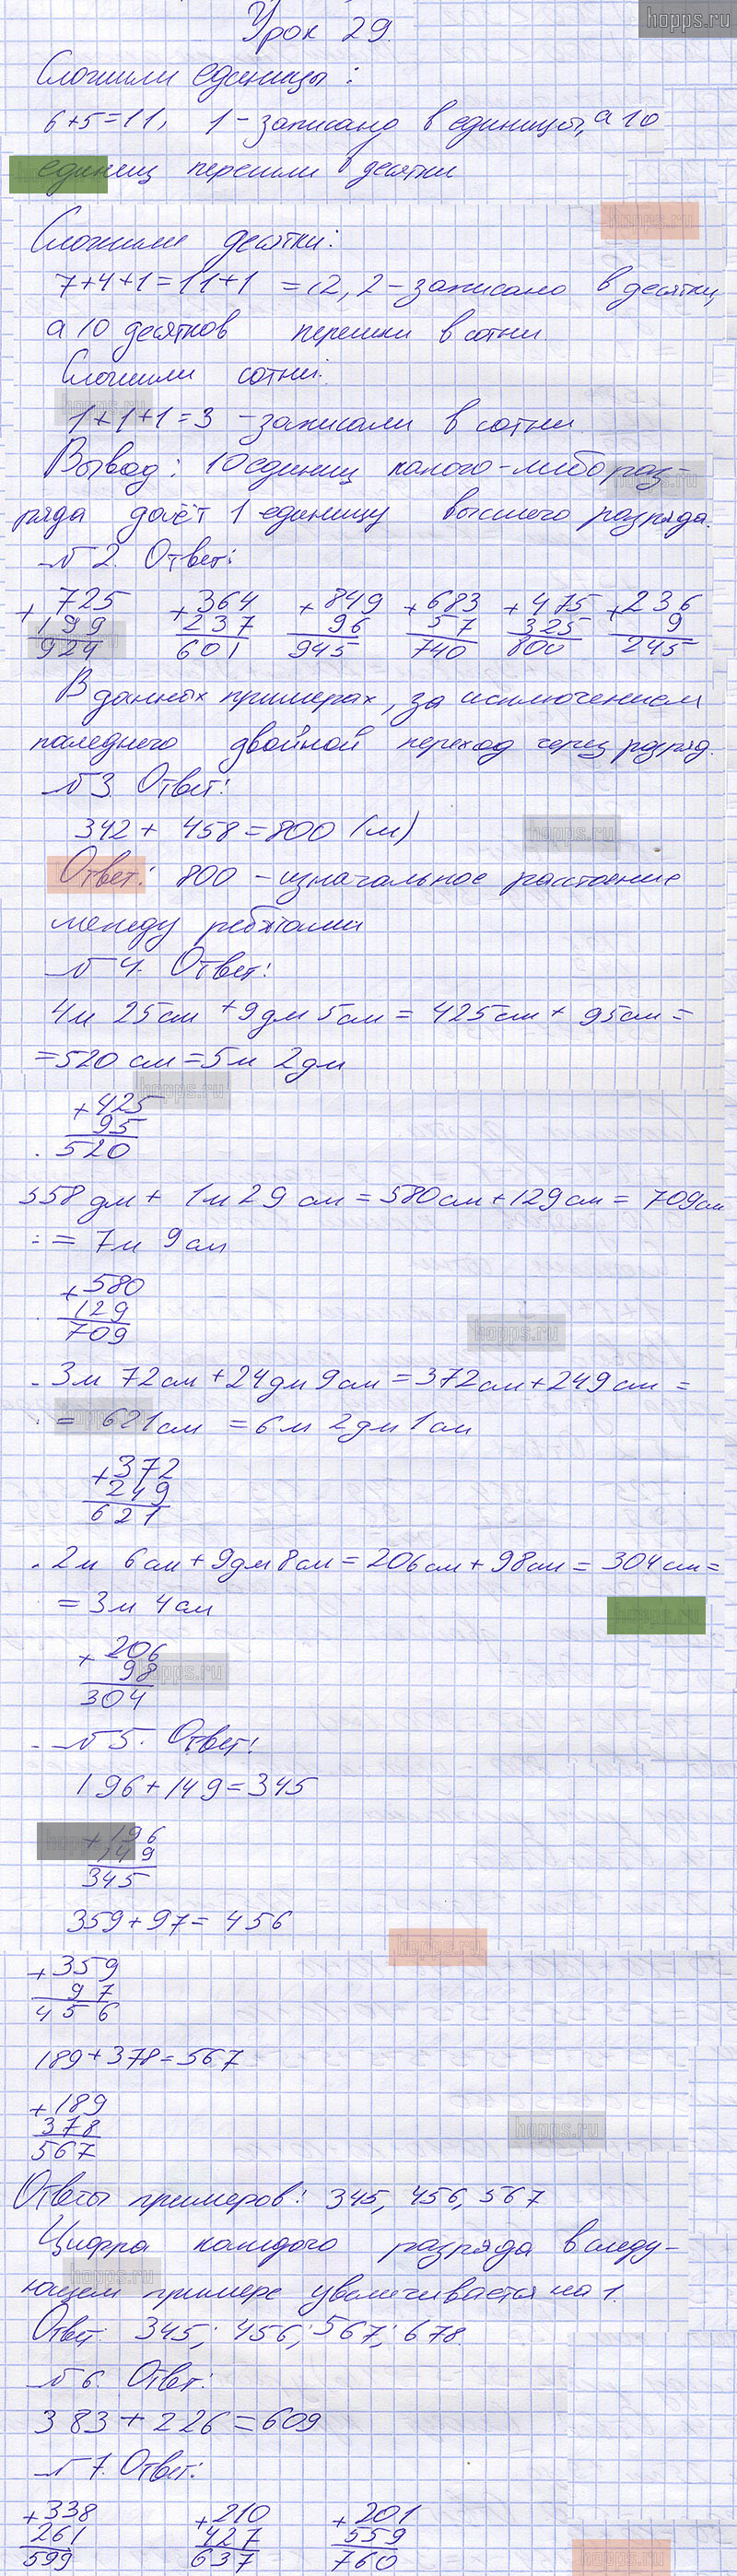 hopps.ru
Урок 29.
Сложили единицы:
6+5=11, 1 - записано в единицы, а 10
единиц перешли в десятки
hopps.ru
Сложили десятки:
7+4+1=11+1 =12, 2 - записано в десятки,
а 10 десятков перешли в сотни.
Сложили сотни:
hopps.ru
1+1+1=3 - записали в сотни.
Вывод: 10 единиц какого-либо раз-
ряда даёт 1 единицу высшего разряда.
№ 2. Ответ:
+725 +364 +849 +683 +475 +236
199 237 96 57 325 9
924 601 945 740 800 245
В данных примерах, за исключением
последнего двойной переход через разряд.
№ 3. Ответ:
342 + 458 = 800 (м)
hopps.ru
Ответ: 800 - изначальное расстояние
между ребятами
№ 4. Ответ:
4м 25см + 9дм 5см = 425см + 95см =
= 520 см = 5м 2дм
hopps.ru
+425
95
520
58 дм + 1м 29 см = 580см + 129см = 709см
= 7м 9см
+580
129
709
hopps.ru
3м 72см + 24дм 9см = 372см + 249см =
= 621см = 6м 2дм 1см
+372
249
621
2м 6см + 9дм 8см = 206см + 98см = 304см =
= 3м 4см
+206
98
304
hopps.ru
№ 5. Ответ:
196 + 149 = 345
+196
149
345
359 + 97 = 456
hopps.ru
+359
97
456
189 + 378 = 567
+189
378
567
hopps.ru
Ответы примеров: 345, 456, 567
Цифра каждого разряда в следу-
ющем примере увеличивается на 1.
hopps.ru
Ответ: 345; 456; 567; 678.
№ 6. Ответ:
383 + 226 = 609
№ 7. Ответ:
+338 +210 +201
261 427 559
599 637 760
hopps.ru